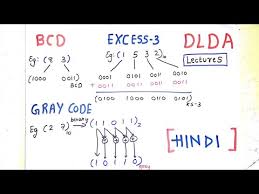 BCD EXCESS-3 DLDA
Eg: (8 3) Eg: (1 5 3 2)₁₀ Lecture5
(1000 0011) BCD → 0001 0101 0011 0010
+ 0011 0011 0011 0011
(0100 1000 0110 0101)
GRAY CODE
Eg (2 7)₁₀ binary (1 1 0 1 1)₂
(1 0 1 1 0) gray
[HINDI]